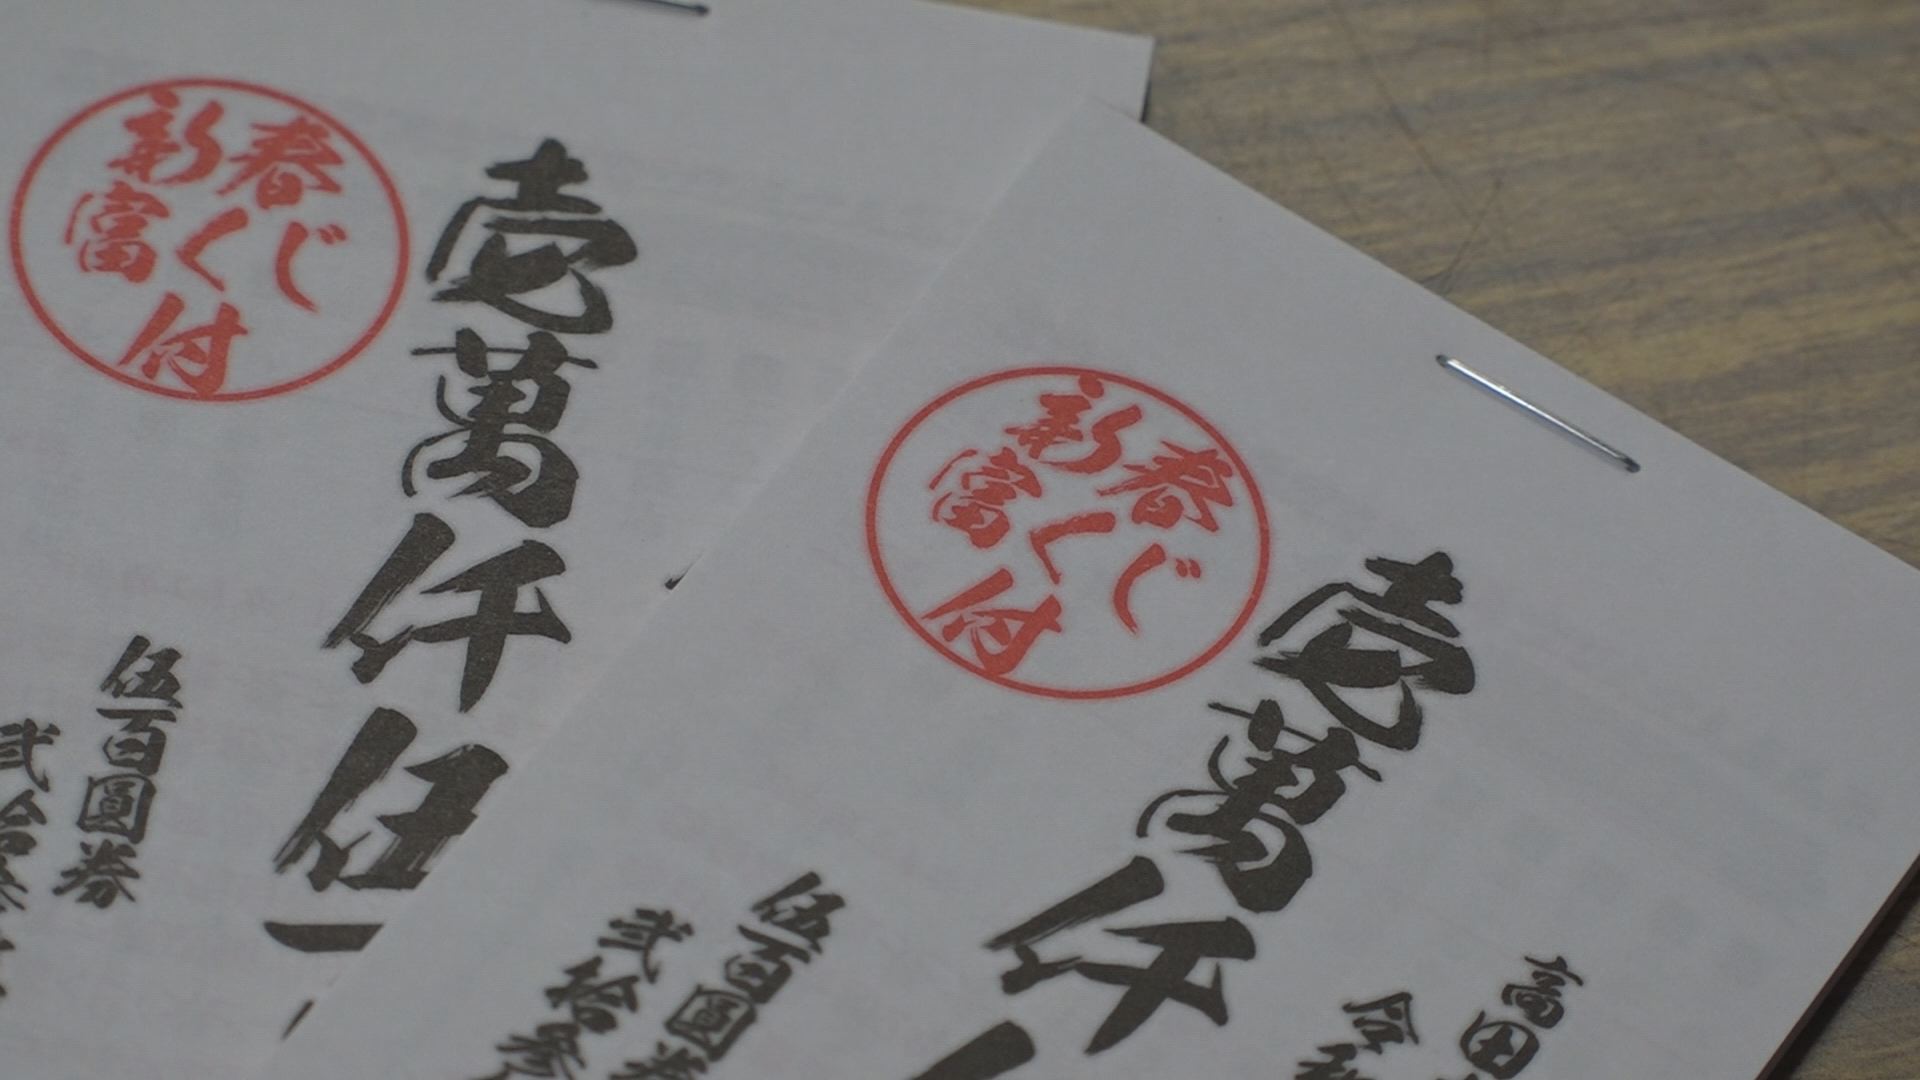 新春
富くじ
付
壱萬仟伍
伍百圓券
弐拾
新春
富くじ
付
壱萬仟
伍百圓券
弐拾参
高田
令和